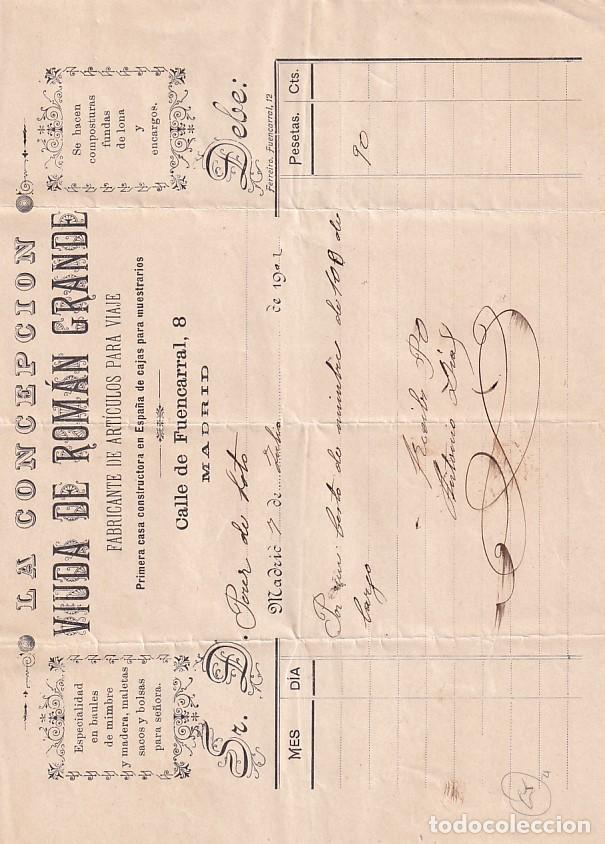 LA CONCEPCION
VIUDA DE ROMÁN GRANDE
FABRICANTE DE ARTICULOS PARA VIAJE
Primera casa constructora en España de cajas para muestrarios
Calle de Fuencarral, 8
MADRID
Especialidad
en baules
de mimbre
y madera, maletas
sacos y bolsas
para señora.
Se hacen
composturas
fundas
de lona
y
encargos.
Sr. D. Perez de Soto Debe:
Ferreiro. Fuencarral, 12
Madrid 7 de Julio de 1902
MES DÍA Pesetas. Cts.
Por un cesto de mimbre de 108 de 90
largo
Recibí
Antonio Díaz
todocoleccion